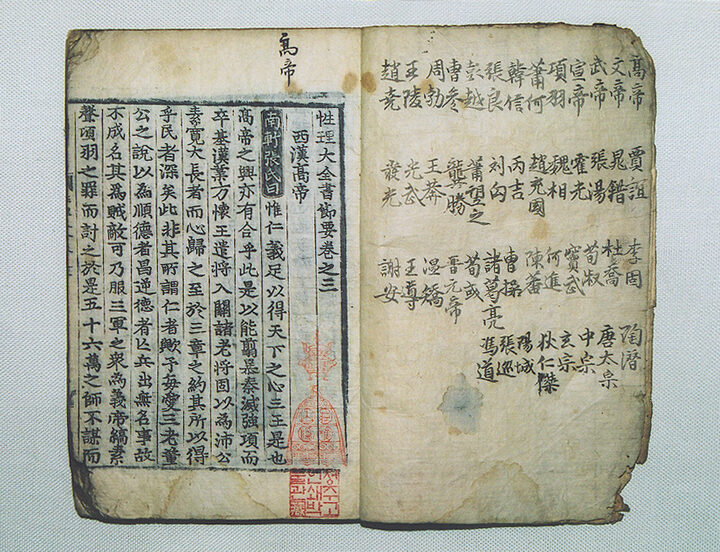 高帝
文帝
武帝
宣帝
項羽
蕭何
韓信
張良
彭越
曹參
周勃
王陵
趙堯
賈誼
晁錯
張湯
霍光
魏相
趙充國
丙吉
刘向
蕭望之
龔勝
王莽
光武
李固
杜喬
荀淑
竇武
何進
陳蕃
曹操
諸葛亮
荀或
晉元帝
溫嶠
王導
謝安
陶潛
唐太宗
中宗
玄宗
狄仁傑
陽城
張巡
馮道
高帝
性理大全書節要卷之三
西漢高帝
南軒張氏曰惟仁義足以得天下之心三王是也
高帝之興亦有合乎此是以能翦暴秦滅強項而
卒基漢業方懷王遣將入關諸老將固以為沛公
素寬大長者而心歸之至於三章之約其所以得
乎民者深矣此非其所謂仁者歟予每愛三老董
公之說以為順德者昌逆德者亡兵出無名事故
不成名其為賊敵可乃服三軍之衆為義帝縞素
聲項羽之罪而討之於是五十六萬之師不謀而
청주고
인쇄박